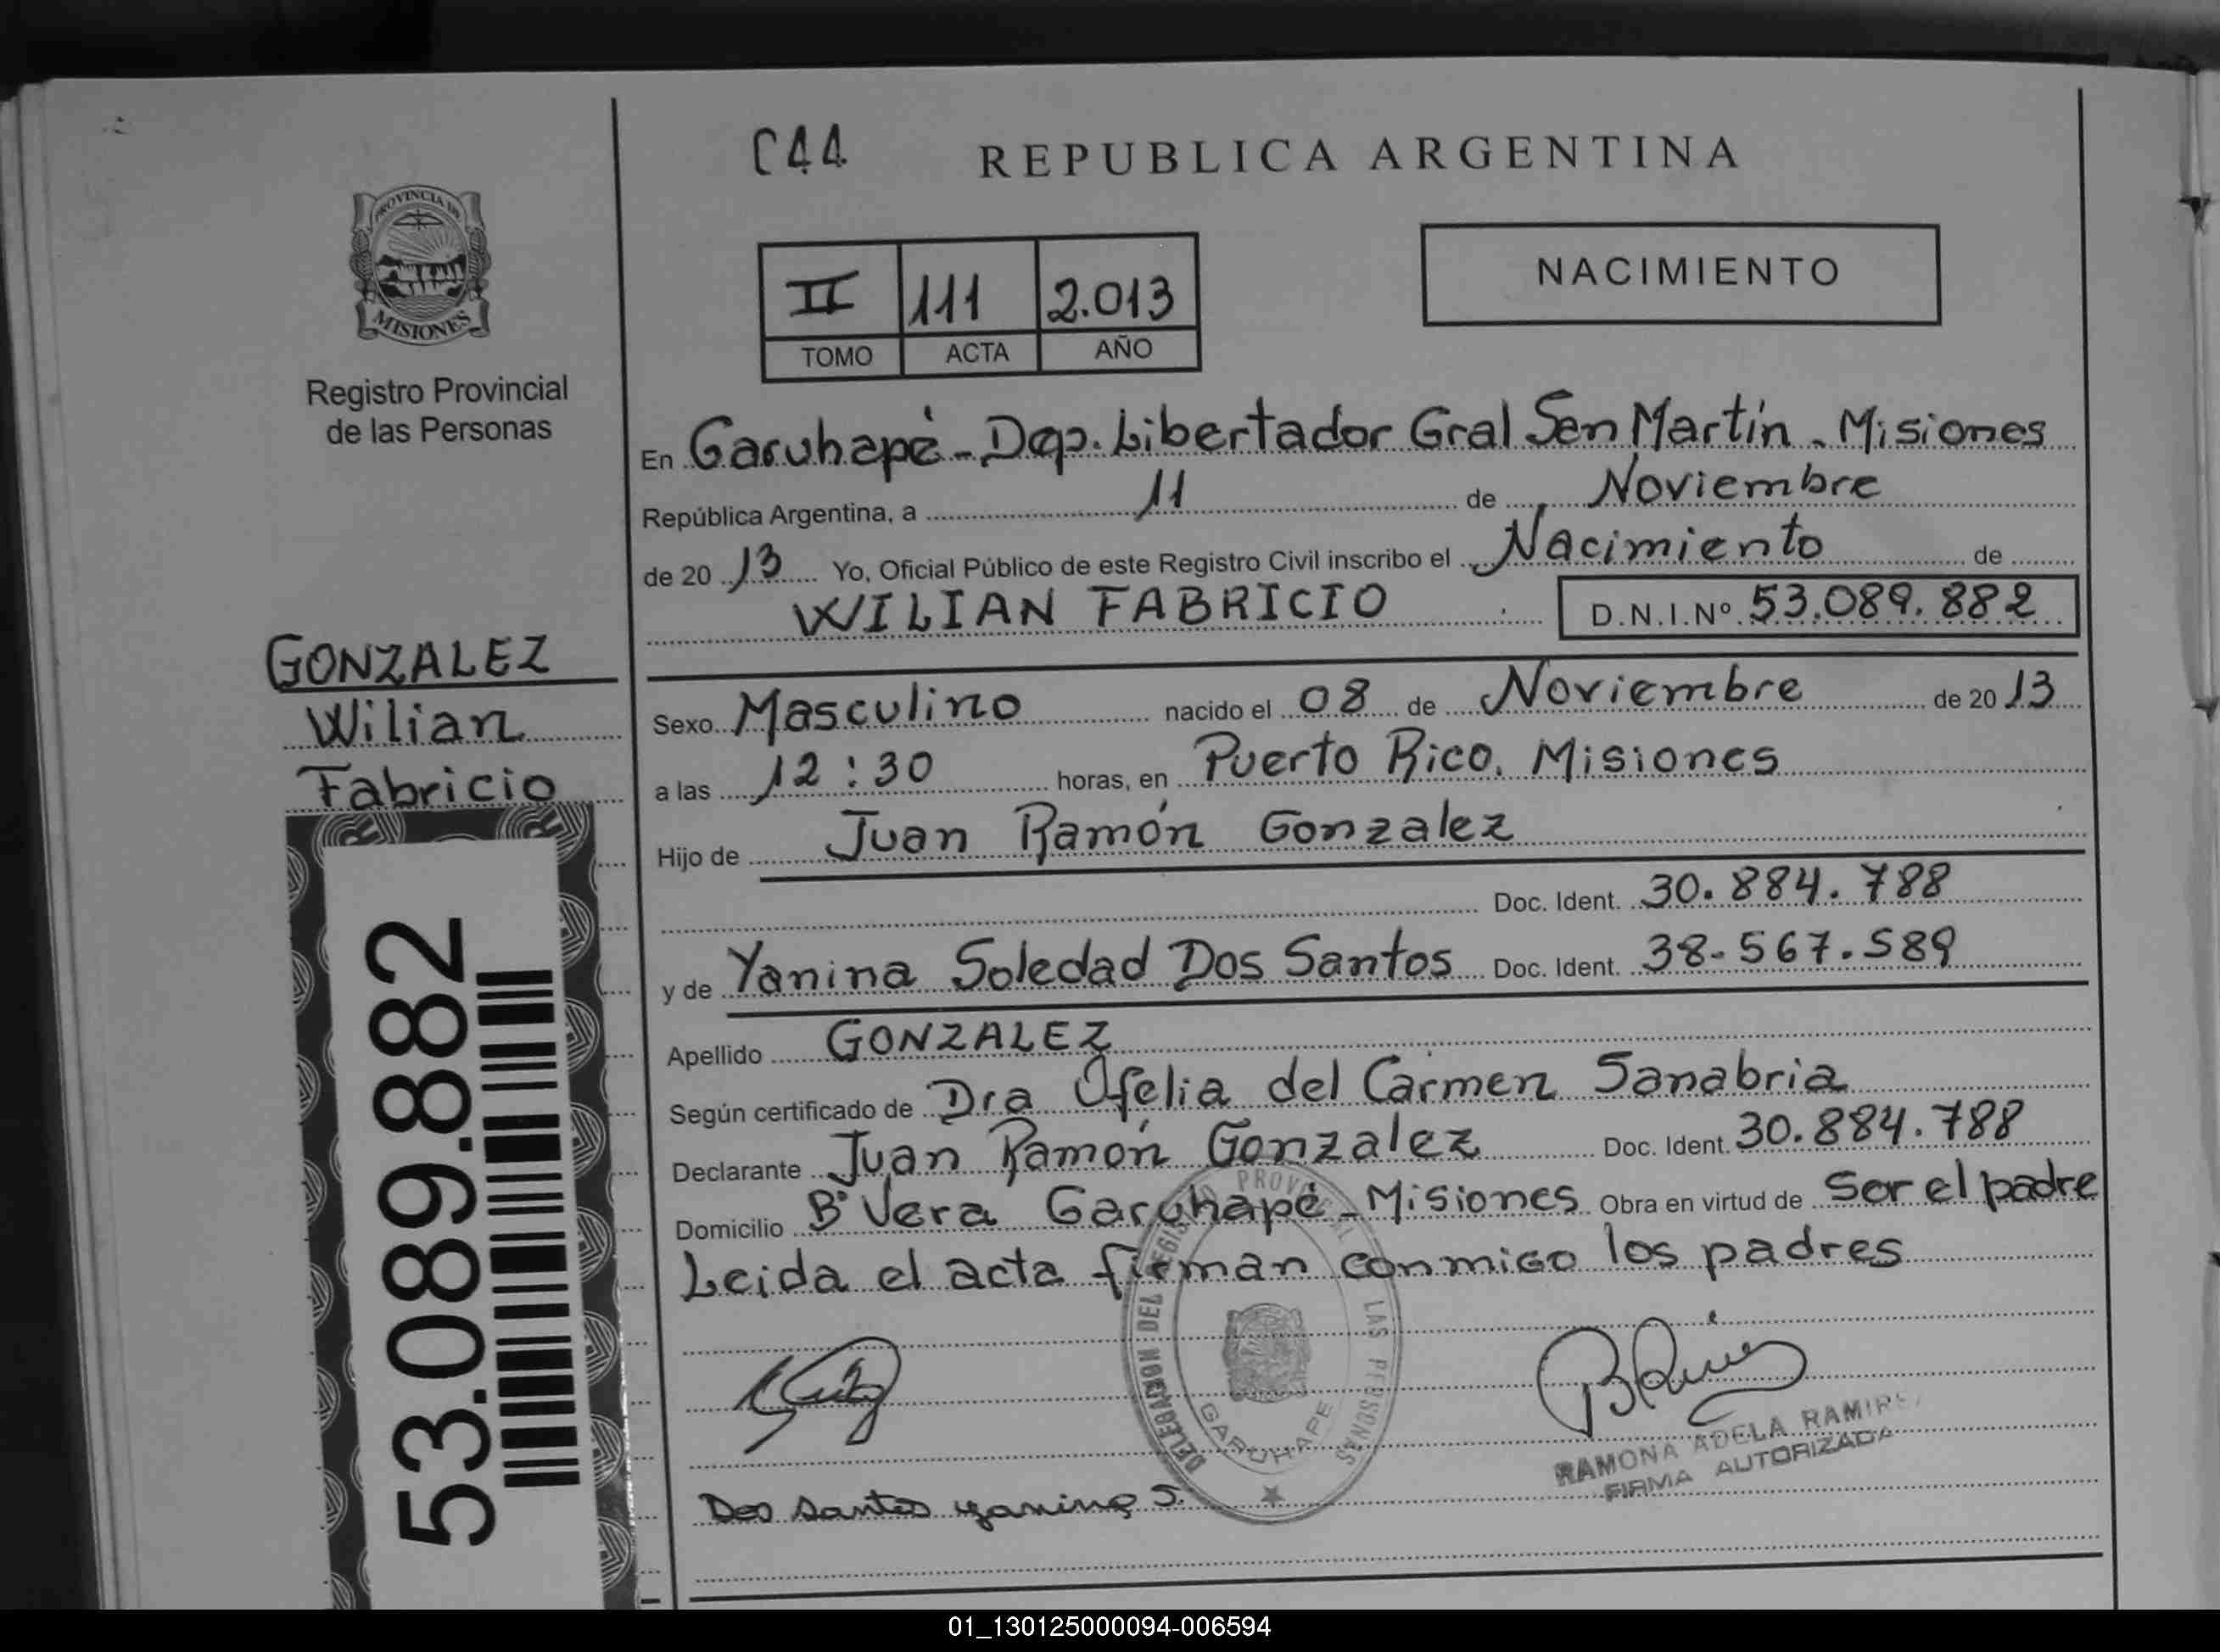 C44
REPUBLICA ARGENTINA
PROVINCIA DE
MISIONES
Registro Provincial
de las Personas
II 111 2.013
TOMO ACTA AÑO
NACIMIENTO
En Garuhapé - Dep. Libertador Gral San Martín - Misiones
República Argentina, a 11 de Noviembre
de 2013 Yo, Oficial Público de este Registro Civil inscribo el Nacimiento de
WILIAN FABRICIO D.N.I.Nº 53.089.882
GONZALEZ
Wilian
Fabricio
53.089.882
Sexo Masculino nacido el 08 de Noviembre de 2013
a las 12:30 horas, en Puerto Rico. Misiones
Hijo de Juan Ramón Gonzalez
Doc. Ident. 30.884.788
y de Yanina Soledad Dos Santos Doc. Ident. 38.567.589
Apellido GONZALEZ
Según certificado de Dra Ofelia del Carmen Sanabria
Declarante Juan Ramón Gonzalez Doc. Ident. 30.884.788
Domicilio Bº Vera Garuhapé - Misiones Obra en virtud de Ser el padre
Leida el acta firman conmigo los padres
DELEGACION DEL REGISTRO PROVINCIAL DE LAS PERSONAS
GARUHAPE
RAMONA ADELA RAMIREZ
FIRMA AUTORIZADA
Dos Santos Yanina S.
01_130125000094-006594